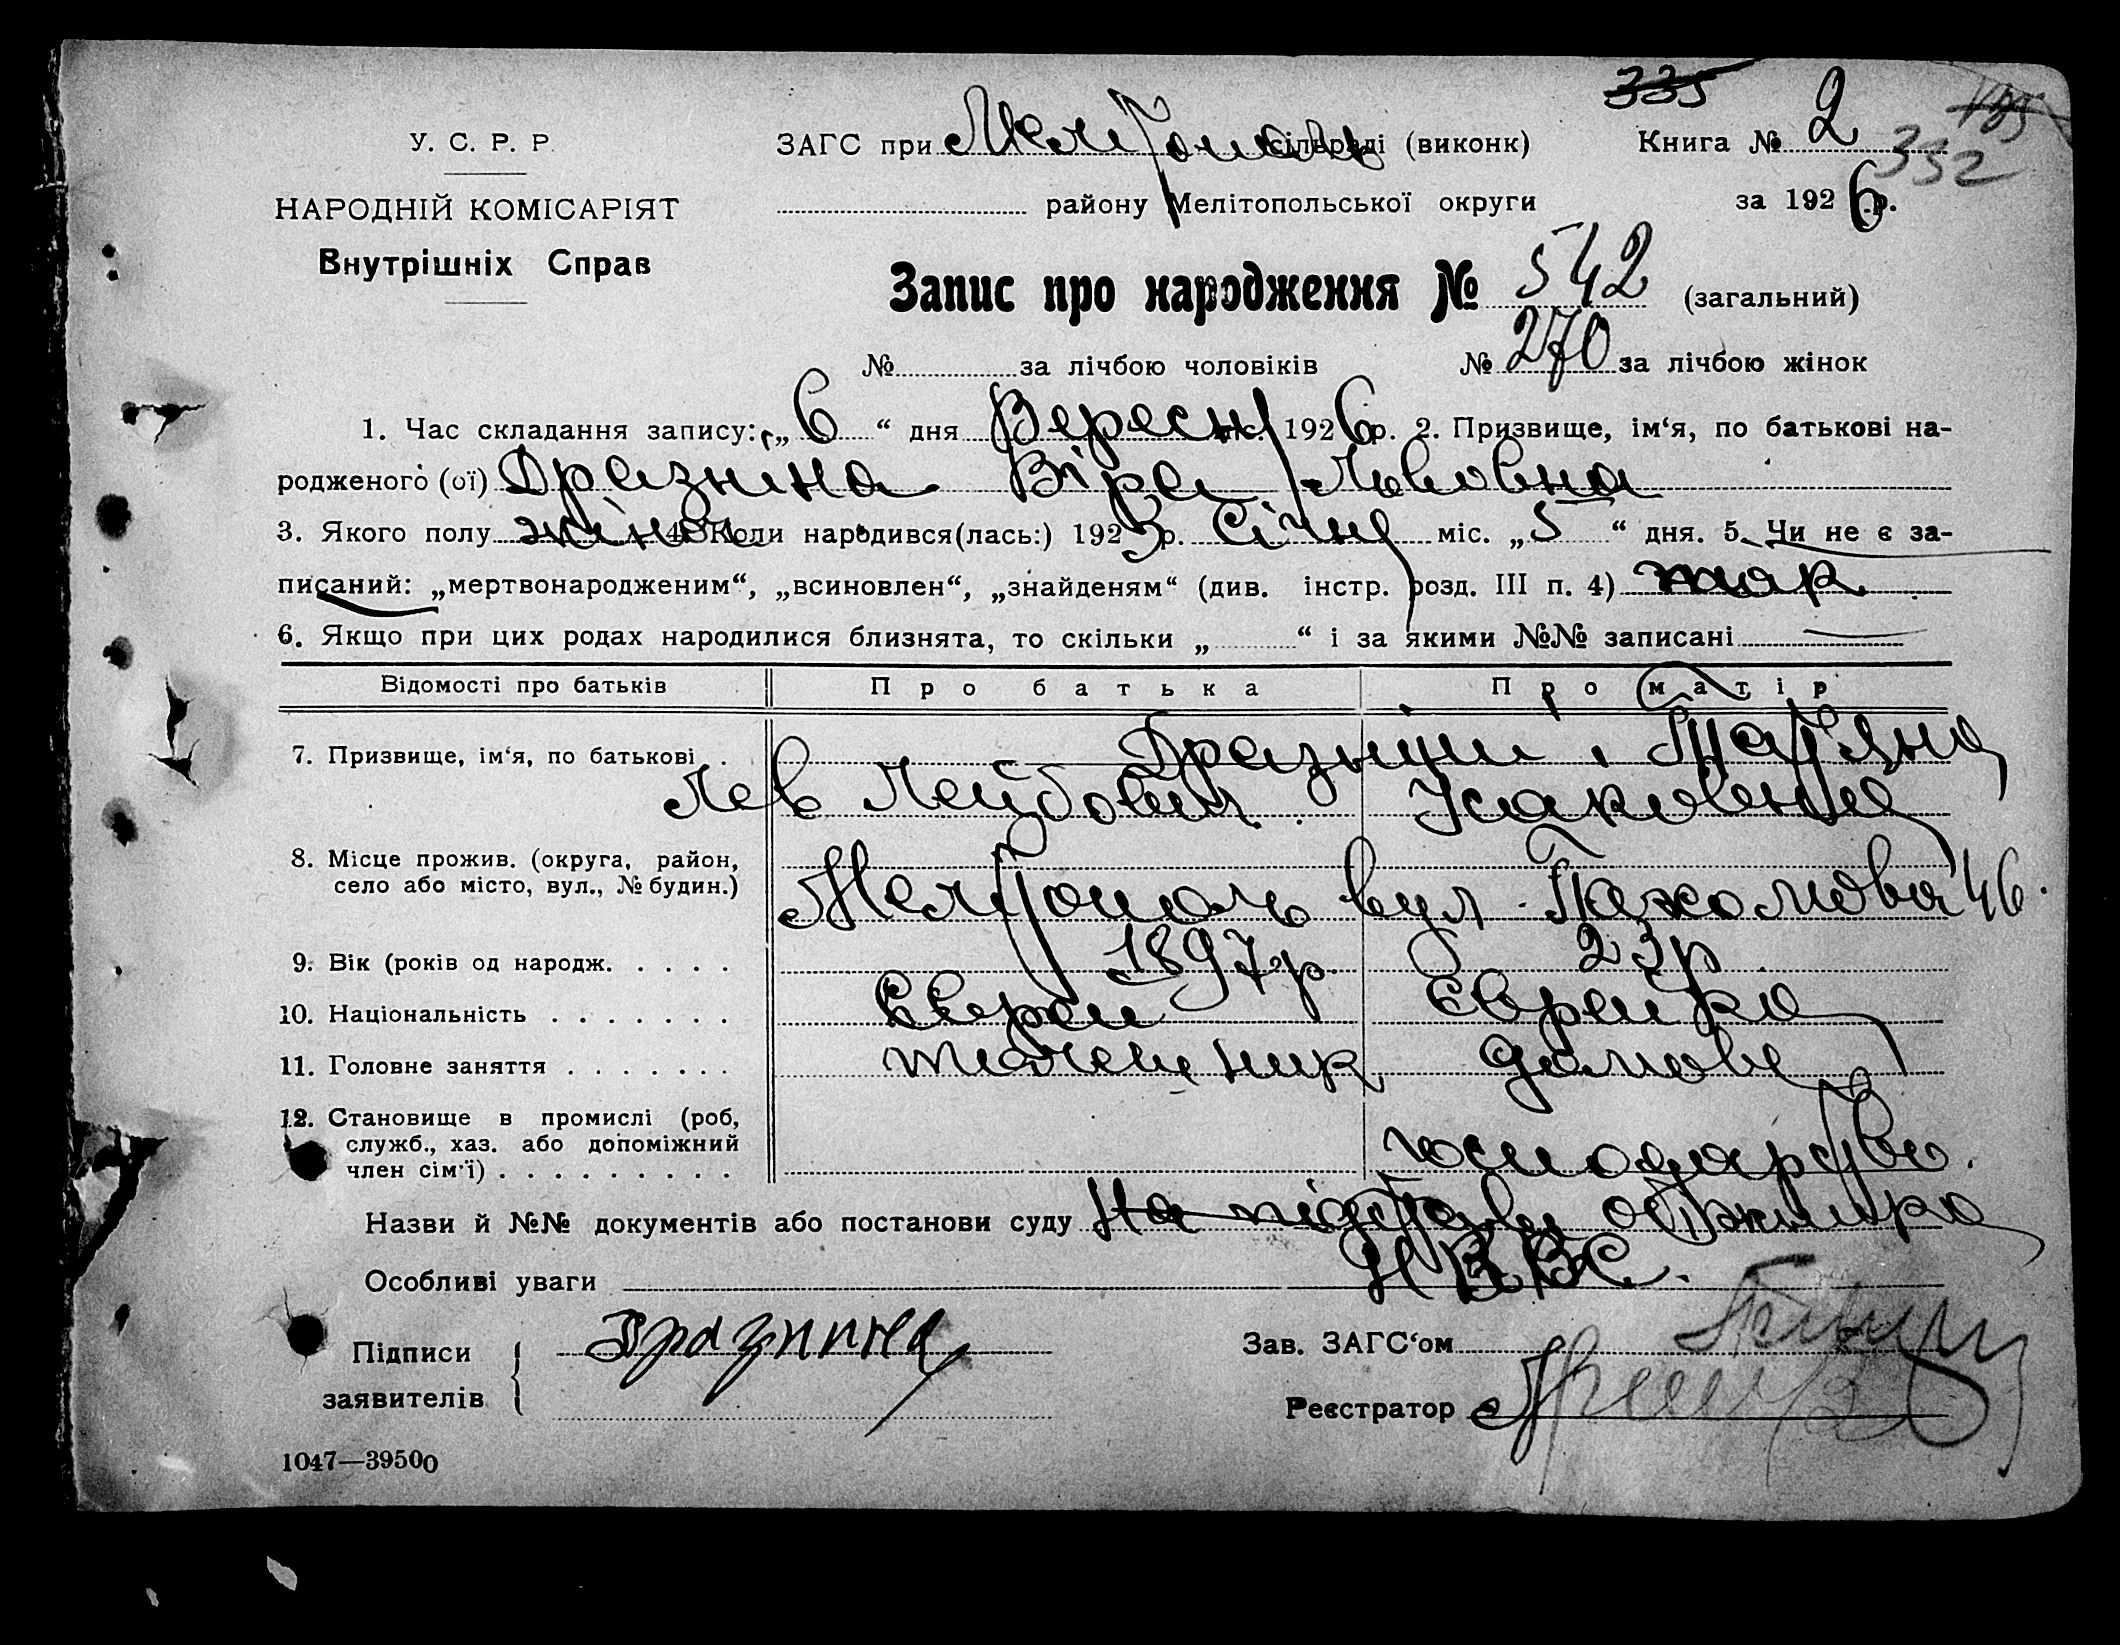 335
У. С. Р. Р. ЗАГС при Мелітополь сільраді (виконк) Книга № 2
332
НАРОДНІЙ КОМІСАРІЯТ району Мелітопольської округи за 1926 р.
Внутрішніх Справ
Запис про народження № 542 (загальний)
№ за лічбою чоловіків № 270 за лічбою жінок
1. Час складання запису: „6“ дня Вересня 1926 р. 2. Призвище, ім‘я, по батькові на-
родженого (ої) Дразніна Віра Львовна
3. Якого полу жіноч 4. Коли народився(лась:) 1923 р. Січня міс. „5“ дня. 5. Чи не є за-
писаний: „мертвонародженим“, „всиновлен“, „знайденям“ (див. інстр. розд. III п. 4)
6. Якщо при цих родах народилися близнята, то скільки „ “ і за якими №№ записані
Відомості про батьків Про батька Про матір
7. Призвище, ім‘я, по батькові . Дразніни Тат'яна
Лев Лейбович Ісаковна
8. Місце прожив. (округа, район,
село або місто, вул., № будин.) Мелітополь вул. Пахомова 46.
9. Вік (років од народж. . . . . 1897 р. 23 р
10. Національність . . . . . . . Єврей Єврейка
11. Головне заняття . . . . . . . домове
12. Становище в промислі (роб,
служб., хаз. або допоміжний
член сім‘ї) . . . . . . . . . господарство.
Назви й №№ документів або постанови суду На підставі
Особливі уваги
Підписи Дразнина Зав. ЗАГС‘ом
заявителів Реєстратор
1047—39500